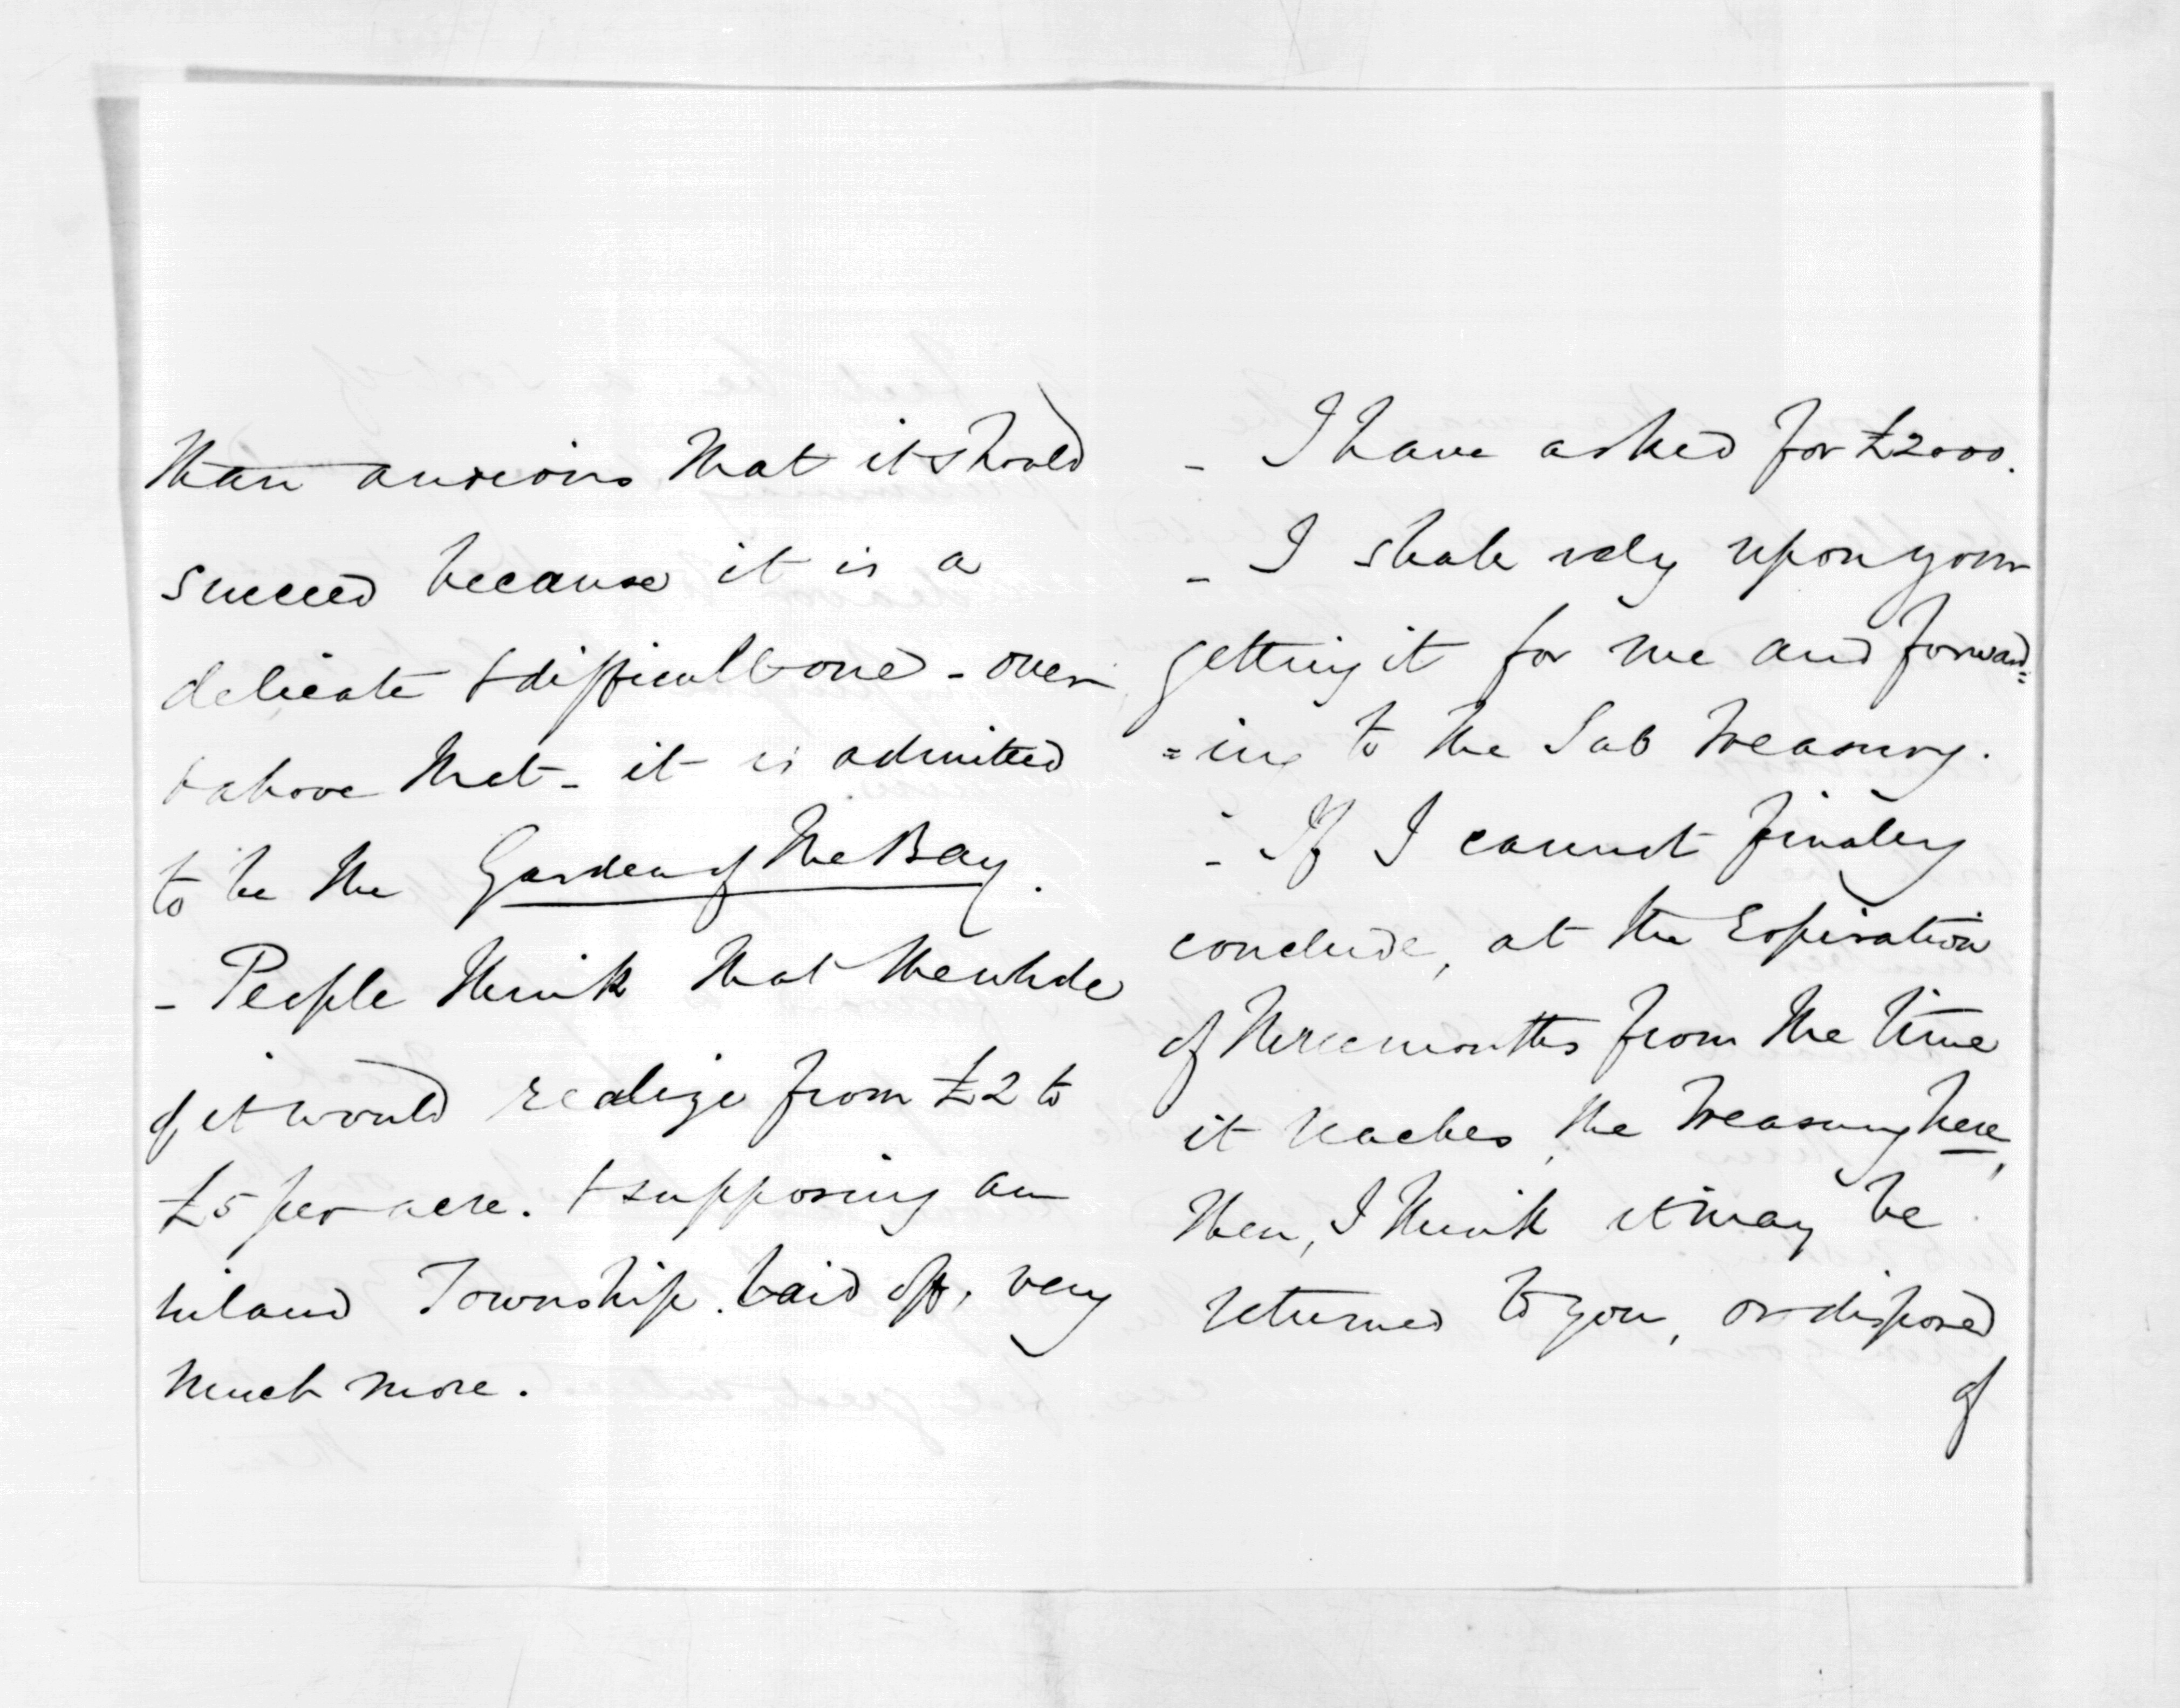 than anxious that it should
succeed because it is a
delicate & difficult one - over
& above that - it is admitted
to be the Garden of the Bay.
- People think that the whole
of it would realize from £2 to
£5 per acre. & supposing an
inland Township laid off, very
much more.
- I have asked for £2000.
- I shall rely upon your
getting it for me and forward=
=ing to the Sub Treasury.
- If I cannot finally
conclude, at the Expiration
of three months from the time
it reaches, the Treasury here,
then, I think it may be
returned to you, or disposed
of